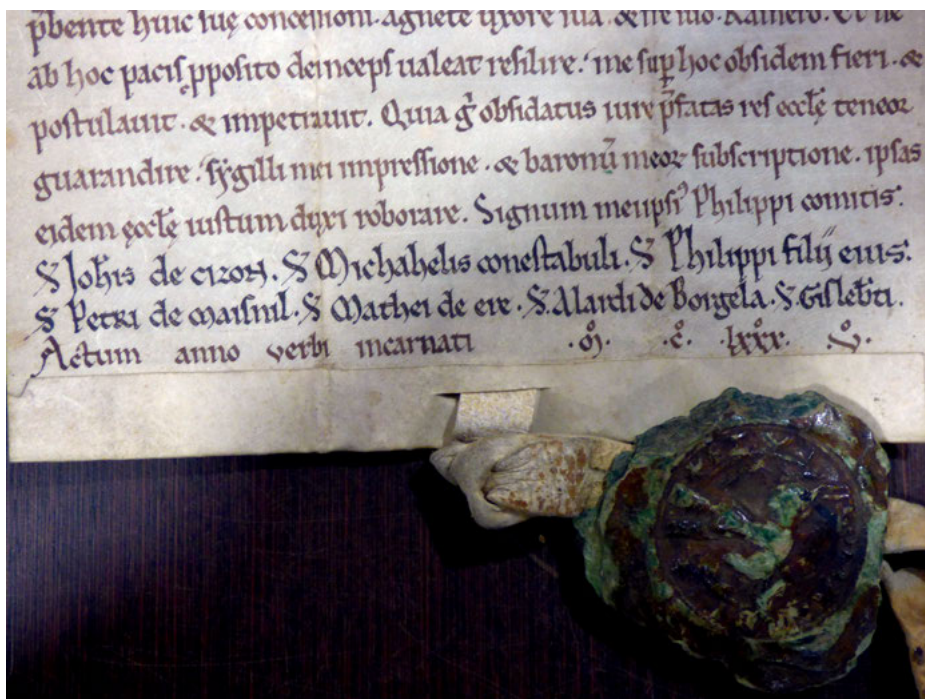 p̄bente huic suę concessioni · Agnete uxore sua · & fr̄e suo · Rainero · Et ne
ab hoc pacis ꝓposito deinceps ualeat resilire · me sup̄ hoc obsidem fieri · &
postulauit · & impetrauit. Quia g̊ obsidatus iure p̄fatis res eccl̄ę teneoꝛ
guarandire · sygilli mei impressione · & baronū meoꝝ subscriptione · ipsas
eidem ęccl̄ę iustum duxi roborare. Signum meuipsiꝰ Philippi comitis.
S̄ Joh̄is de cizon. S̄ Michahelis conestabuli. S̄ Philippi filii eius.
S̄ Petri de maisnil. S̄ Mathei de ere. S̄. Alardi de Borgela. S̄. Gisleb̄ti.
Actum anno verbi incarnati ·m̊· ·c̊· ·lxxx̊· v̊·